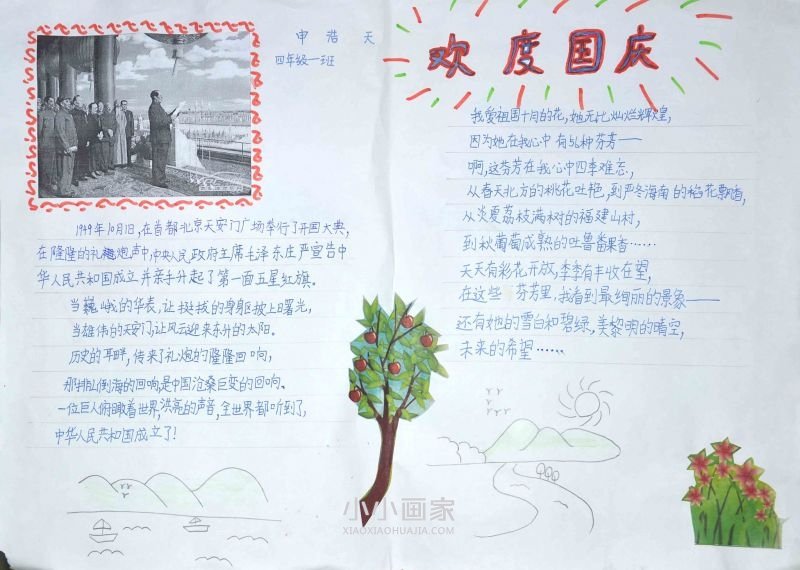 申浩天
四年级一班
1949年10月1日,在首都北京天安门广场举行了开国大典,
在隆隆的礼炮声中,中央人民政府主席毛泽东庄严宣告中
华人民共和国成立并亲手升起了第一面五星红旗。
当巍峨的华表,让挺拔的身躯披上曙光,
当雄伟的天安门,让风云迎来东升的太阳。
历史的耳畔,传来了礼炮的隆隆回响,
那排山倒海的回响是中国沧桑巨变的回响、
一位巨人俯瞰着世界,洪亮的声音,全世界都听到了,
中华人民共和国成立了!
欢度国庆
我爱祖国十月的花,她无比灿烂辉煌,
因为她在我心中有56种芬芳——
啊,这芬芳在我心中四季难忘,
从春天北方的桃花吐艳,到严冬海南的稻花飘香,
从炎夏荔枝满树的福建山村,
到秋葡萄成熟的吐鲁番果香……
天天有彩花开放,季季有丰收在望,
在这些芬芳里,我看到最绚丽的景象——
还有她的雪白和碧绿,美黎明的晴空,
未来的希望……
小小画家
XIAOXIAOHUAJIA.COM